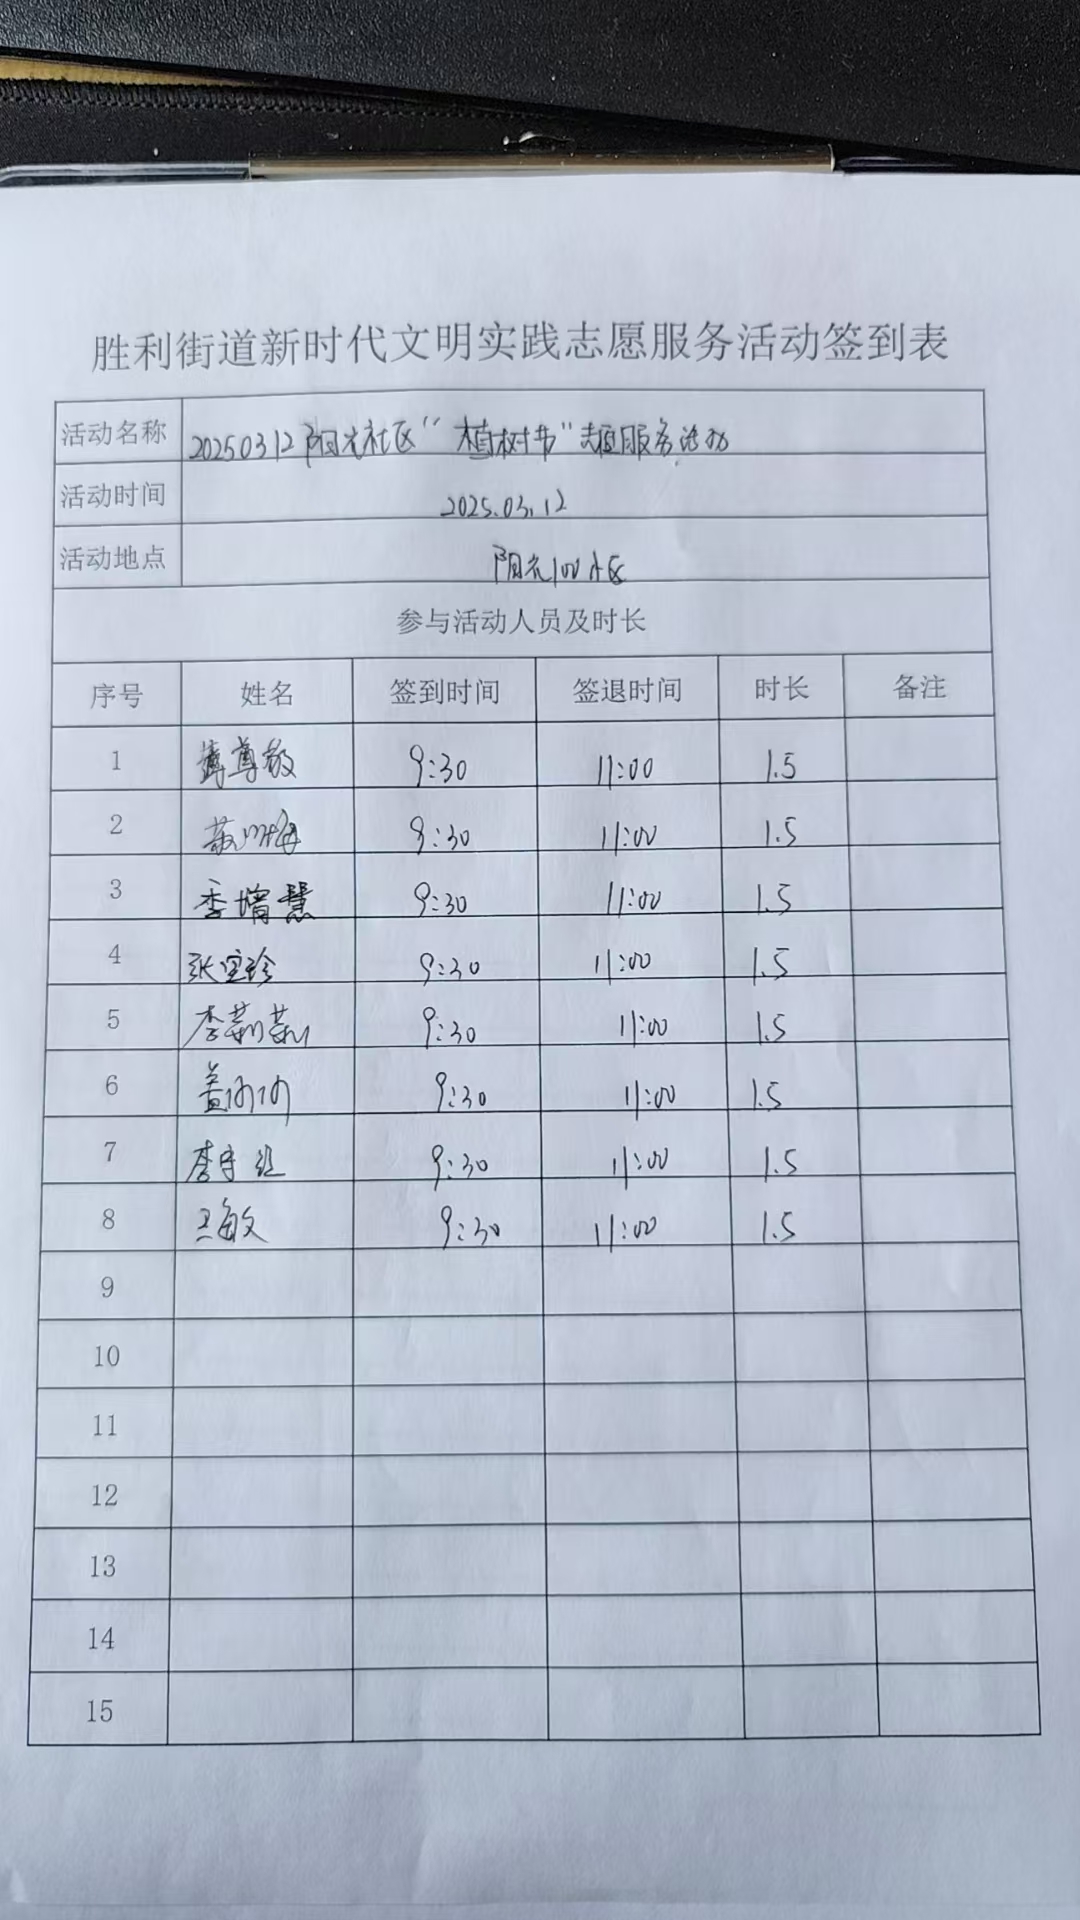 胜利街道新时代文明实践志愿服务活动签到表
活动名称 20250312阳光社区“植树节”志愿服务活动
活动时间 2025.03.12
活动地点 阳光100小区
参与活动人员及时长
序号 姓名 签到时间 签退时间 时长 备注
1 9:30 11:00 1.5
2 9:30 11:00 1.5
3 李增慧 9:30 11:00 1.5
4 张宝珍 9:30 11:00 1.5
5 李莉莉 9:30 11:00 1.5
6 9:30 11:00 1.5
7 9:30 11:00 1.5
8 王敏 9:30 11:00 1.5
9
10
11
12
13
14
15